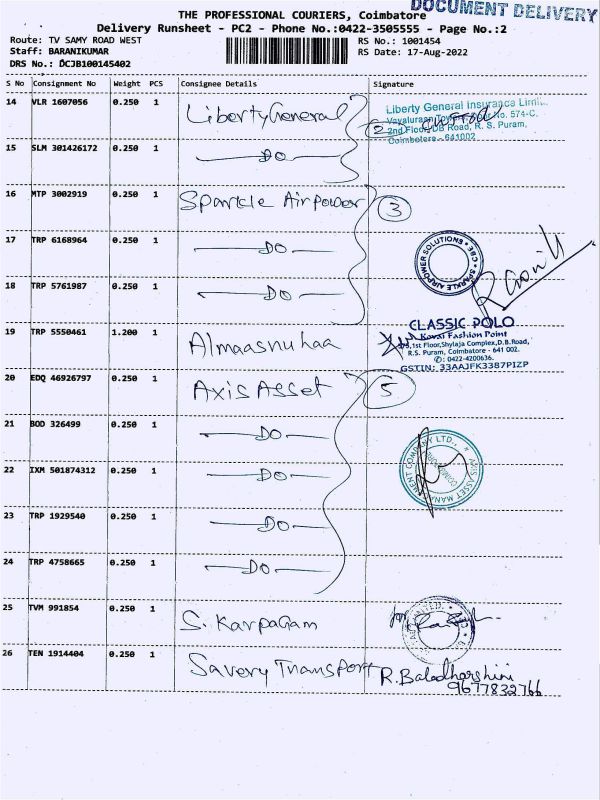 DOCUMENT DELIVERY
THE PROFESSIONAL COURIERS, Coimbatore
Delivery Runsheet - PC2 - Phone No.:0422-3505555 - Page No.:2
Route: TV SAMY ROAD WEST
Staff: BARANIKUMAR
DRS No.: DCJB100145402
RS No.: 1001454
RS Date: 17-Aug-2022
S No Consignment No Weight PCS Consignee Details Signature
14 VLR 1607056 0.250 1 Liberty General
2
Liberty General Insurance Limi
2nd Floor, DB Road, R. S. Puram,
Coimbatore - 641002
No. 574-C.
15 SLM 301426172 0.250 1 DO
16 MTP 3002919 0.250 1 Sparkle Airpower 3
17 TRP 6168964 0.250 1 DO
SPARKLE AIRPOWER SOLUTIONS * CBE *
18 TRP 5761987 0.250 1 DO
19 TRP 5550461 1.200 1 Almaasnuhaa
CLASSIC POLO
Kovai Fashion Point
1st Floor,Shylaja Complex,D.B.Road,
R.S. Puram, Coimbatore - 641 002.
✆: 0422-4200636.
GSTIN: 33AAJFK3387P1ZP
20 EDQ 46926797 0.250 1 Axis Asset 5
21 BOD 326499 0.250 1 DO
22 IXM 501874312 0.250 1 DO
AXIS ASSET MANAGEMENT COMPANY LTD.,
23 TRP 1929540 0.250 1 DO
24 TRP 4758665 0.250 1 DO
25 TVM 991854 0.250 1 S. Karpagam
26 TEN 1914404 0.250 1 Savery Transport R. Baladharshini
9677832766